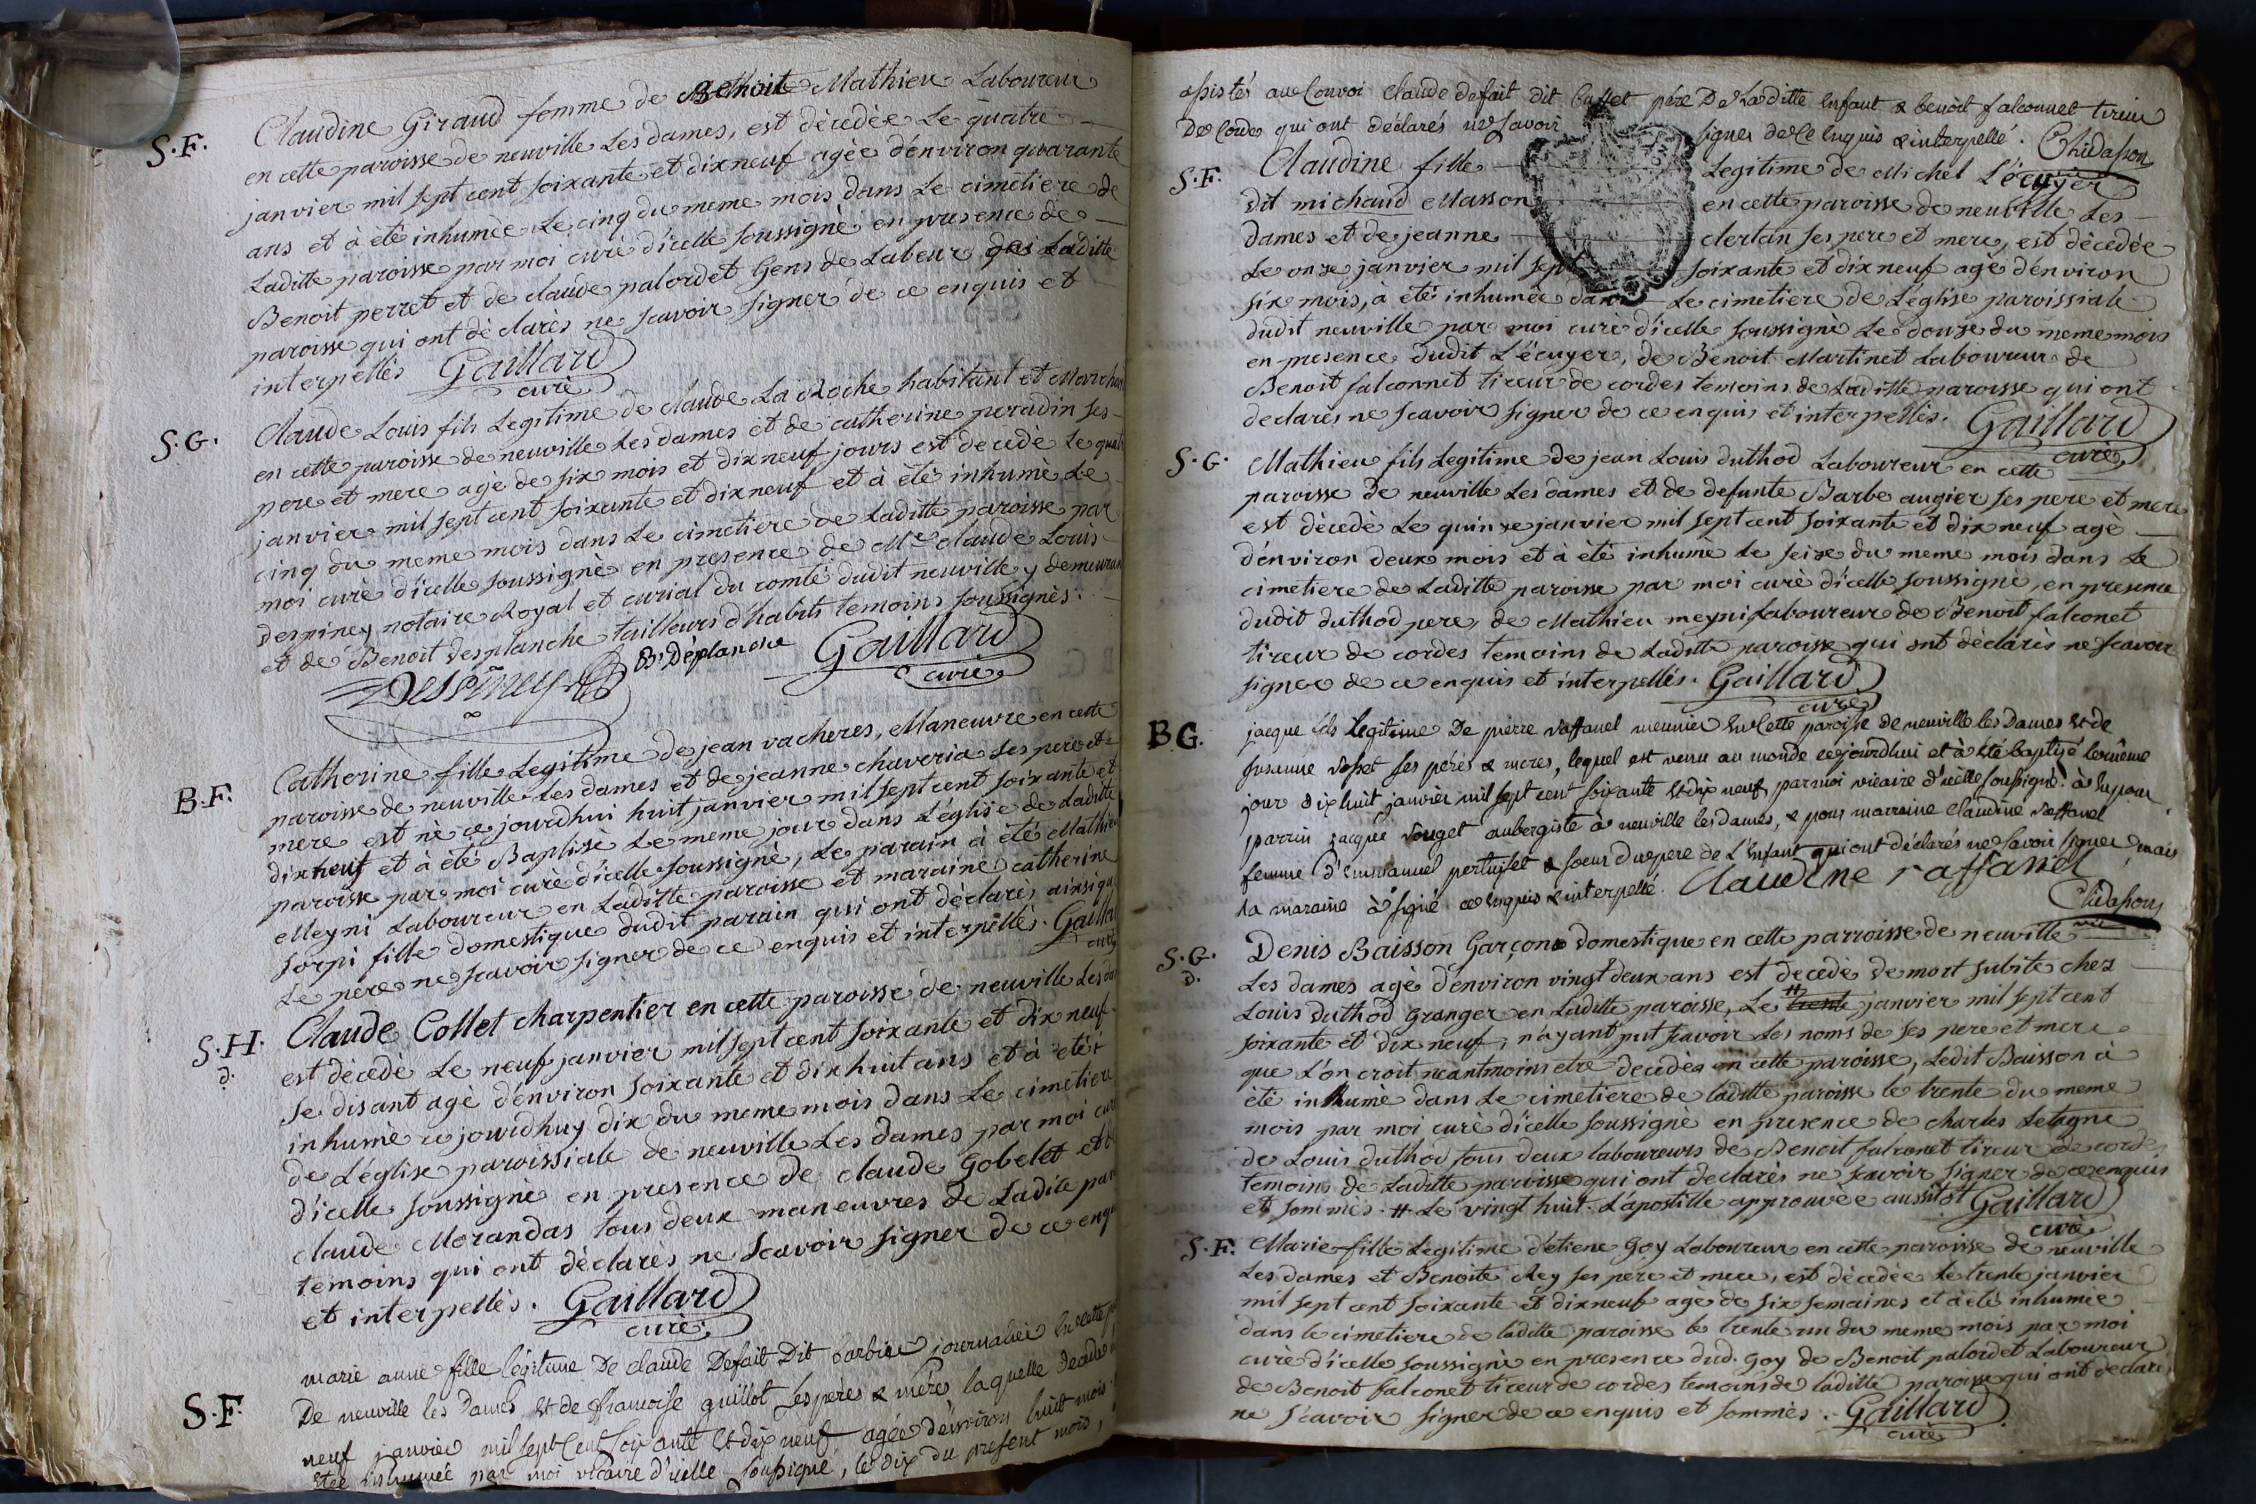 S.F.
Claudine Giraud femme de Benoit Mathieu Laboureur
en cette paroisse de neuville Les dames, est dècedèe Le quatre
janvier mil sept cent soixante et dixneuf agèe d'environ quarante
ans et à étè inhumèe Le cinq du meme mois dans Le cimetiere de
Laditte paroisse par moi curè d'icelle soussignè en presence de
Benoit perret et de claude palordet Gens de Labeur de Laditte
paroisse qui ont dèclarès ne scavoir signer de ce enquis et
interpellès Gaillard
curè
S.G.
Claude Louis fils Legitime de claude La Roche habitant et Marchan
en cette paroisse de neuville Les dames et de catherine peradin ses
pere et mere agè de six mois et dixneuf jours est decedè Le quat
janvier mil sept cent soixante et dixneuf et à étè inhumè Le
cinq du meme mois dans Le cimetiere de Laditte paroisse par
moi curè d'icelle soussignè en presence de Me claude Louis
despiney notaire Royal et curial du comtè dudit neuville y demeuran
et de Benoit desplanche tailleurs d'habits temoins soussignès.
Despiney Bt Déplanche Gaillard
curè
B.F.
Catherine fille Legitime de jean vacheres, Maneuvre en cette
paroisse de neuville Les dames et de jeanne chaveria ses pere et
mere est nè ce jourdhui huit janvier mil sept cent soixante et
dixneuf et à étè Baptisè Le meme jour dans L'église de Laditte
paroisse par moi curè d'icelle soussignè, Le parain à étè Mathieu
Meyni Laboureur en Laditte paroisse et maraine catherine
sorpi fille domestique dudit parain qui ont dèclarès ainsi qu
Le pere ne scavoir signer de ce enquis et interpellès. Gaillar
curè
S.H.
d.
Claude Collet charpentier en cette paroisse de neuville Les da
est dècedè Le neuf janvier mil sept cent soixante et dix neuf
se disant agè d'environ soixante et dix huit ans et à étè
inhumè ce jourdhuy dix du meme mois dans Le cimetiere
de L'église paroissiale de neuville Les dames par moi cur
d'icelle soussignè en presence de claude Gobelet et de
claude Morandas tous deux maneuvres de Ladite par
temoins qui ont dèclarès ne scavoir signer de ce enqu
et interpellès. Gaillard
curè
S.F.
marie anne fille légitime De claude Defait Dit barbier journalier en cette p
De neuville les Dames et de francoise guillot ses péres & méres laquelle decede
neuf janvier mil sept Cent soixante et dix neuf agée d'environ huit mois
étée inhumée par moi vicaire d'icelle soussigné, le dix du present mois,
assistés au Convoi claude defait dit pére De Laditte enfant & benoit falconnet tireur
De Corde qui ont déclarés ne Savoir signer de Ce Enquis & interpellé. Chidasson
S.F.
Claudine fille Legitime de Michel L'écuyer
dit michaud Masson en cette paroisse de neuville Les
dames et de jeanne clertan ses pere et mere, est dècedèe
Le onze janvier mil sept soixante et dixneuf agè d'environ
six mois, à étè inhumèe dans Le cimetiere de L'église paroissiale
dudit neuville par moi curè d'icelle soussignè Le douze du meme mois
en presence dudit L'écuyer, de Benoit Martinet Laboureur de
Benoit falconnet tireur de cordes temoins de Laditte paroisse qui ont
declarès ne scavoir signer de ce enquis et interpellès. Gaillard
curè
S.G.
Mathieu fils Legitime de jean Louis duthod Laboureur en cette
paroisse de neuville Les dames et de defunte Barbe augier ses pere et mere
est dècedè Le quinze janvier mil sept cent soixante et dix neuf agè
d'environ deux mois et à étè inhumè Le seize du meme mois dans Le
cimetiere de Laditte paroisse par moi curè d'icelle soussignè, en presence
dudit duthod pere, de Mathieu meyni Laboureur de Benoit falconet
tireur de cordes temoins de Laditte paroisse qui ont dèclarès ne scavoir
signer de ce enquis et interpellès. Gaillard
curè
B.G.
jacque fils légitime De pierre raffanel meunier En Cette paroisse de neuville les Dames et de
susanne ses péres & meres, lequel est venu au monde cejourdhui et à été baptizé le même
jour dix huit janvier mil sept cent soixante et dix neuf, par moi vicaire d'icelle soussigné. à eu pour
parrin jacque vouget aubergiste à neuville les dames, & pour marraine claudine raffanel
femme d'emmanuel pertuiset & soeur du pere de l'Enfant qui ont déclarés ne savoir signer, mais
la maraine à signé ce enquis & interpellé. claudine raffanel
Chidasson
vic
S.G.
d.
Denis Baisson Garçon domestique en cette parroisse de neuville
Les dames agè d'environ vingt deux ans est decedè de mort subite chez
Louis duthod Granger en Laditte paroisse, Le # trente janvier mil sept cent
soixante et dix neuf, n'ayant put scavoir Les noms de ses pere et mere
que L'on croit neantmoins etre decedès en cette paroisse, Ledit Baisson à
étè inhumè dans Le cimetiere de laditte paroisse le trente du meme
mois par moi curè d'icelle soussignè en presence de charles Letagne
de Louis duthod tous deux laboureurs de Benoit falconet tireur de corde
temoins de Laditte paroisse qui ont declarès ne scavoir signer de ce enquis
et sommès. # Le vingt huit. L'apostille approuvèe aussitot Gaillard
curè
S.F.
Marie fille Legitime d'etiene Goy Laboureur en cette paroisse de neuville
Les dames et Benoite Rey ses pere et mere, est dècedèe Le trente janvier
mil sept cent soixante et dixneuf agè de six semaines et à étè inhumèe
dans le cimetiere de laditte paroisse le trente un du meme mois par moi
curè d'icelle soussignè en presence dud. Goy de Benoit palordet Laboureur
de Benoit falconet tireur de cordes temoins de laditte paroisse qui ont declarè
ne scavoir signer de ce enquis et sommès. Gaillard
curè